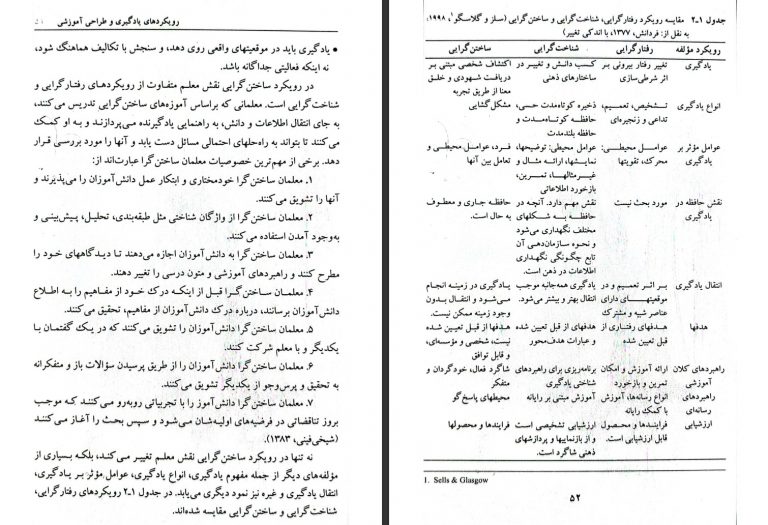 رویکردهای یادگیری و طراحی آموزشی
• یادگیری باید در موقعیتهای واقعی روی دهد، و سنجش با تکالیف هماهنگ شود،
نه اینکه فعالیتی جداگانه باشد.
در رویکرد ساختن‌گرایی نقش معلم متفاوت از رویکردهای رفتارگرایی و
شناخت‌گرایی است. معلمانی که براساس آموزه‌های ساختن‌گرایی تدریس می‌کنند،
به جای انتقال اطلاعات و دانش، به راهنمایی یادگیرنده می‌پردازند و به او کمک
می‌کنند تا بتواند به راه‌حلهای احتمالی مسائل دست یابد و آنها را مورد بررسی قرار
دهد. برخی از مهم‌ترین خصوصیات معلمان ساختن‌گرا عبارت‌اند از:
۱. معلمان ساختن‌گرا خودمختاری و ابتکار عمل دانش‌آموزان را می‌پذیرند و
آنها را تشویق می‌کنند.
۲. معلمان ساختن‌گرا از واژگان شناختی مثل طبقه‌بندی، تحلیل، پیش‌بینی و
به‌وجود آمدن استفاده می‌کنند.
۳. معلمان ساختن‌گرا به دانش‌آموزان اجازه می‌دهند تا دیدگاههای خود را
مطرح کنند و راهبردهای آموزشی و متون درسی را تغییر دهند.
۴. معلمان ساختن‌گرا قبل از اینکه درک خود از مفاهیم را به اطلاع
دانش‌آموزان برسانند، درباره درک دانش‌آموزان از مفاهیم، تحقیق می‌کنند.
۵. معلمان ساختن‌گرا دانش‌آموزان را تشویق می‌کنند که در یک گفتمان با
یکدیگر و با معلم شرکت کنند.
۶. معلمان ساختن‌گرا دانش‌آموزان را از طریق پرسیدن سؤالات باز و متفکرانه
به تحقیق و پرس‌وجو از یکدیگر تشویق می‌کنند.
۷. معلمان ساختن‌گرا دانش‌آموز را با تجربیاتی روبه‌رو می‌کنند که موجب
بروز تناقضاتی در فرضیه‌های اولیه‌شان می‌شود و سپس بحث را آغاز می‌کنند
(شیخی‌فینی، ۱۳۸۳).
نه تنها در رویکرد ساختن‌گرایی نقش معلم تغییر می‌کند، بلکه بسیاری از
مؤلفه‌های دیگر از جمله مفهوم یادگیری، انواع یادگیری، عوامل مؤثر بر یادگیری،
انتقال یادگیری و غیره نیز نمود دیگری می‌یابد. در جدول ۱-۲ رویکردهای رفتارگرایی،
شناخت‌گرایی و ساختن‌گرایی مقایسه شده‌اند.
جدول ۱-۲ مقایسه رویکرد رفتارگرایی، شناخت‌گرایی و ساختن‌گرایی (سلز و گلاسگو۱، ۱۹۹۸،
به نقل از: فردانش، ۱۳۷۷، با اندکی تغییر)
رویکرد مؤلفه رفتارگرایی شناخت‌گرایی ساختن‌گرایی
یادگیری تغییر رفتار بیرونی بر کسب دانش و تغییر در اکتشاف شخصی مبتنی بر
اثر شرطی‌سازی ساختارهای ذهنی دریافت شهودی و خلق
معنا از طریق تجربه
انواع یادگیری تشخیص، تعمیم، ذخیره کوتاه‌مدت حسی، مشکل‌گشایی
تداعی و زنجیره‌ای حافظه کوتاه‌مدت و
حافظه بلندمدت
عوامل مؤثر بر عوامل محیطی: عوامل محیطی: توضیحها، فرد، عوامل محیطی و
یادگیری محرک، تقویتها نمایشها، ارائه مثال و تعامل بین آنها
غیرمثالها، تمرین،
بازخورد اطلاعاتی
نقش حافظه در مورد بحث نیست نقش مهم دارد. آنچه در حافظه جاری و معطوف
یادگیری حافظه به شکلهای به حال است.
مختلف نگهداری می‌شود
و نحوه سازمان‌دهی آن
تابع چگونگی نگهداری
اطلاعات در ذهن است.
انتقال یادگیری بر اثر تعمیم و در یادگیری همه‌جانبه موجب یادگیری در زمینه انجام
موقعیتهای دارای انتقال بهتر و بیشتر می‌شود. می‌شود و انتقال بدون
عناصر شبیه و مشترک وجود زمینه ممکن نیست.
هدفها هدفهای رفتاری از هدفهای از قبل تعیین شده هدفها از قبل تعیین شده
قبل تعیین شده و عبارات هدف‌محور نیست، شخصی و مؤسسه‌ای،
و قابل توافق
راهبردهای کلان ارائه آموزش و امکان برنامه‌ریزی برای راهبردهای شاگرد فعال، خودگردان و
آموزشی تمرین و بازخورد شناختی یادگیری متفکر
راهبردهای انواع رسانه‌ها، آموزش آموزش مبتنی بر رایانه محیطهای پاسخ‌گو
رسانه‌ای با کمک رایانه
ارزشیابی فرایندها و محصول ارزشیابی تشخیصی است فرایندها و محصولها
قابل ارزشیابی است. و از بازنماییها و پردازشهای
ذهنی شاگرد است.
1. Sells & Glasgow
۵۲